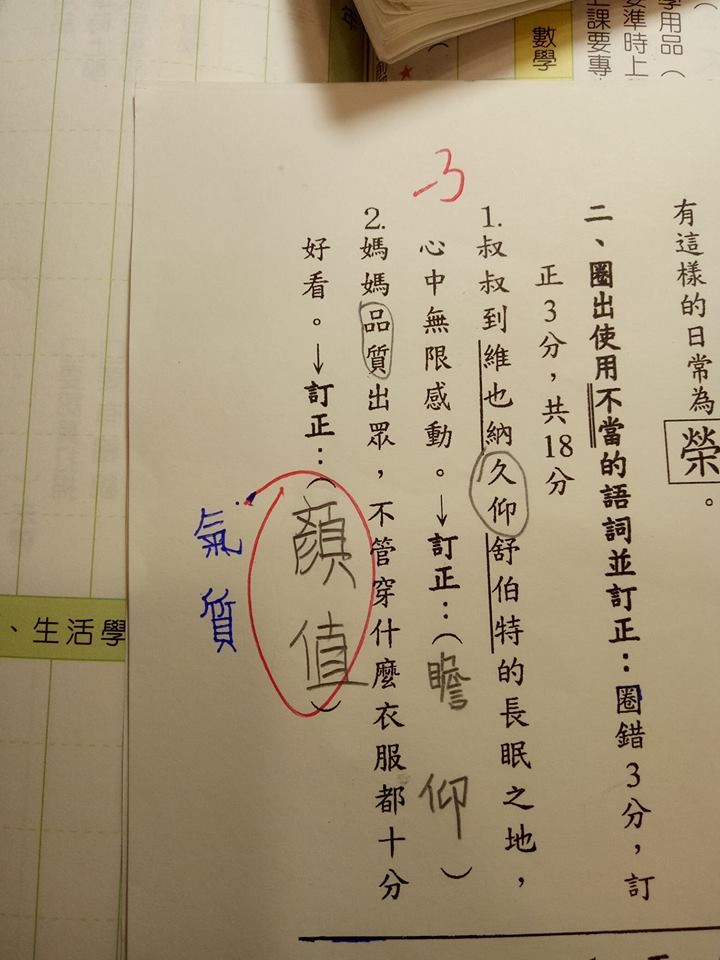 有這樣的日常為榮。
二、圈出使用不當的語詞並訂正：圈錯3分，訂
正3分，共18分
1.叔叔到維也納久仰舒伯特的長眠之地，
心中無限感動。→訂正：（瞻仰）
-3
2.媽媽品質出眾，不管穿什麼衣服都十分
好看。→訂正：（顏值）
氣質
學用品（
要準時上
上課要專
數學
、生活學